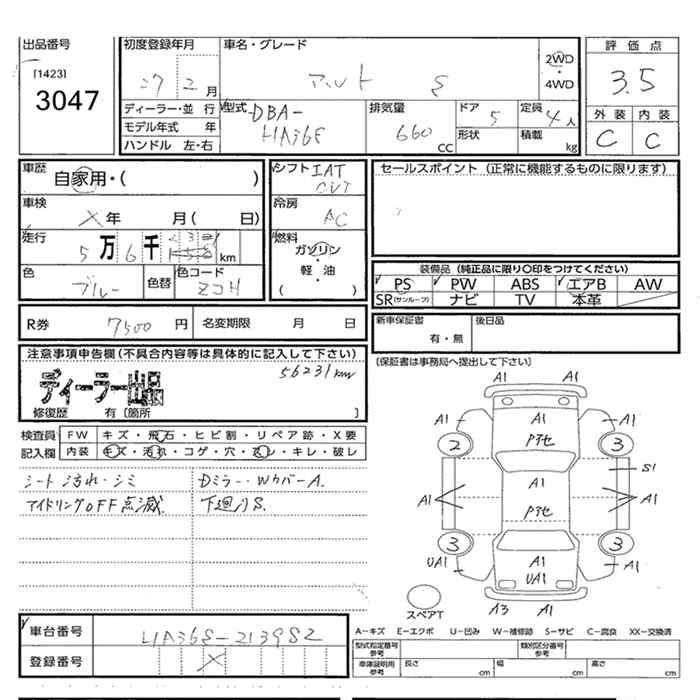 出品番号
[1423]
3047
初度登録年月
27 2 月
車名・グレード
アルト S
2WD
・
4WD
評価点
3.5
外装 内装
C C
ディーラー・並行
モデル年式 年
ハンドル 左・右
型式 DBA-
HA36S
排気量
660
CC
ドア 5
形状
定員 4 人
積載 kg
車歴 自家用・( )
車検 × 年 月( 日)
走行 5 万 6 千 231 km
色 ブルー
色替
色コード
ZCH
シフト IAT
CVT
冷房
AC
燃料
ガソリン
・
軽・油
( )
セールスポイント (正常に機能するものに限ります)
装備品 (純正品に限り○印をつけてください)
PS PW ABS エアB AW
SR(サンルーフ) ナビ TV 本革
R券 7500 円 名変期限 月 日
新車保証書
有・無
後日品
(保証書は事務局へ提出して下さい)
注意事項申告欄(不具合内容等は具体的に記入して下さい)
56231km
ディーラー出品
修復歴 有〔箇所 〕
検査員 FW キズ・飛石・ヒビ割・リペア跡・X要
記入欄 内装 キズ・汚れ・コゲ・穴・ヌレ・キレ・破レ
シート汚れ・シミ
Dミラー・WカバーA.
アイドリングOFF点滅.
下廻りS.
A1 A1
A1 A1 A1
Pアセ
2 3
S1
A1 A1 A1
Pアセ
3 3
UA1 A1 A1
UA1
A3 A1
スペアT
A-キズ E-エクボ U-凹み W-補修跡 S-サビ C-腐食 XX-交換済
車台番号 HA36S-213982
登録番号 ×
型式指定番号
参考
類別区分番号
参考
車庫証明用
参考
長さ cm 幅 cm 高さ cm